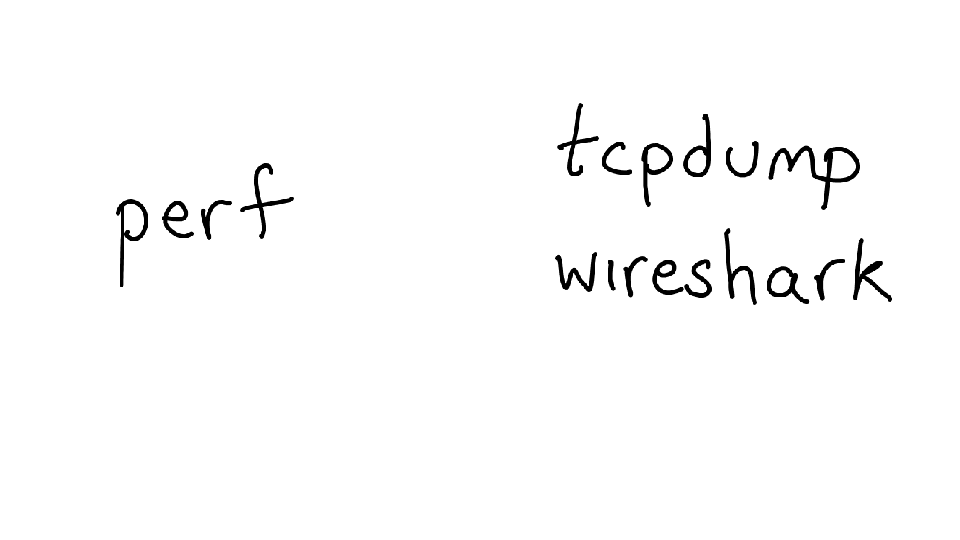 perf
tcpdump
wireshark